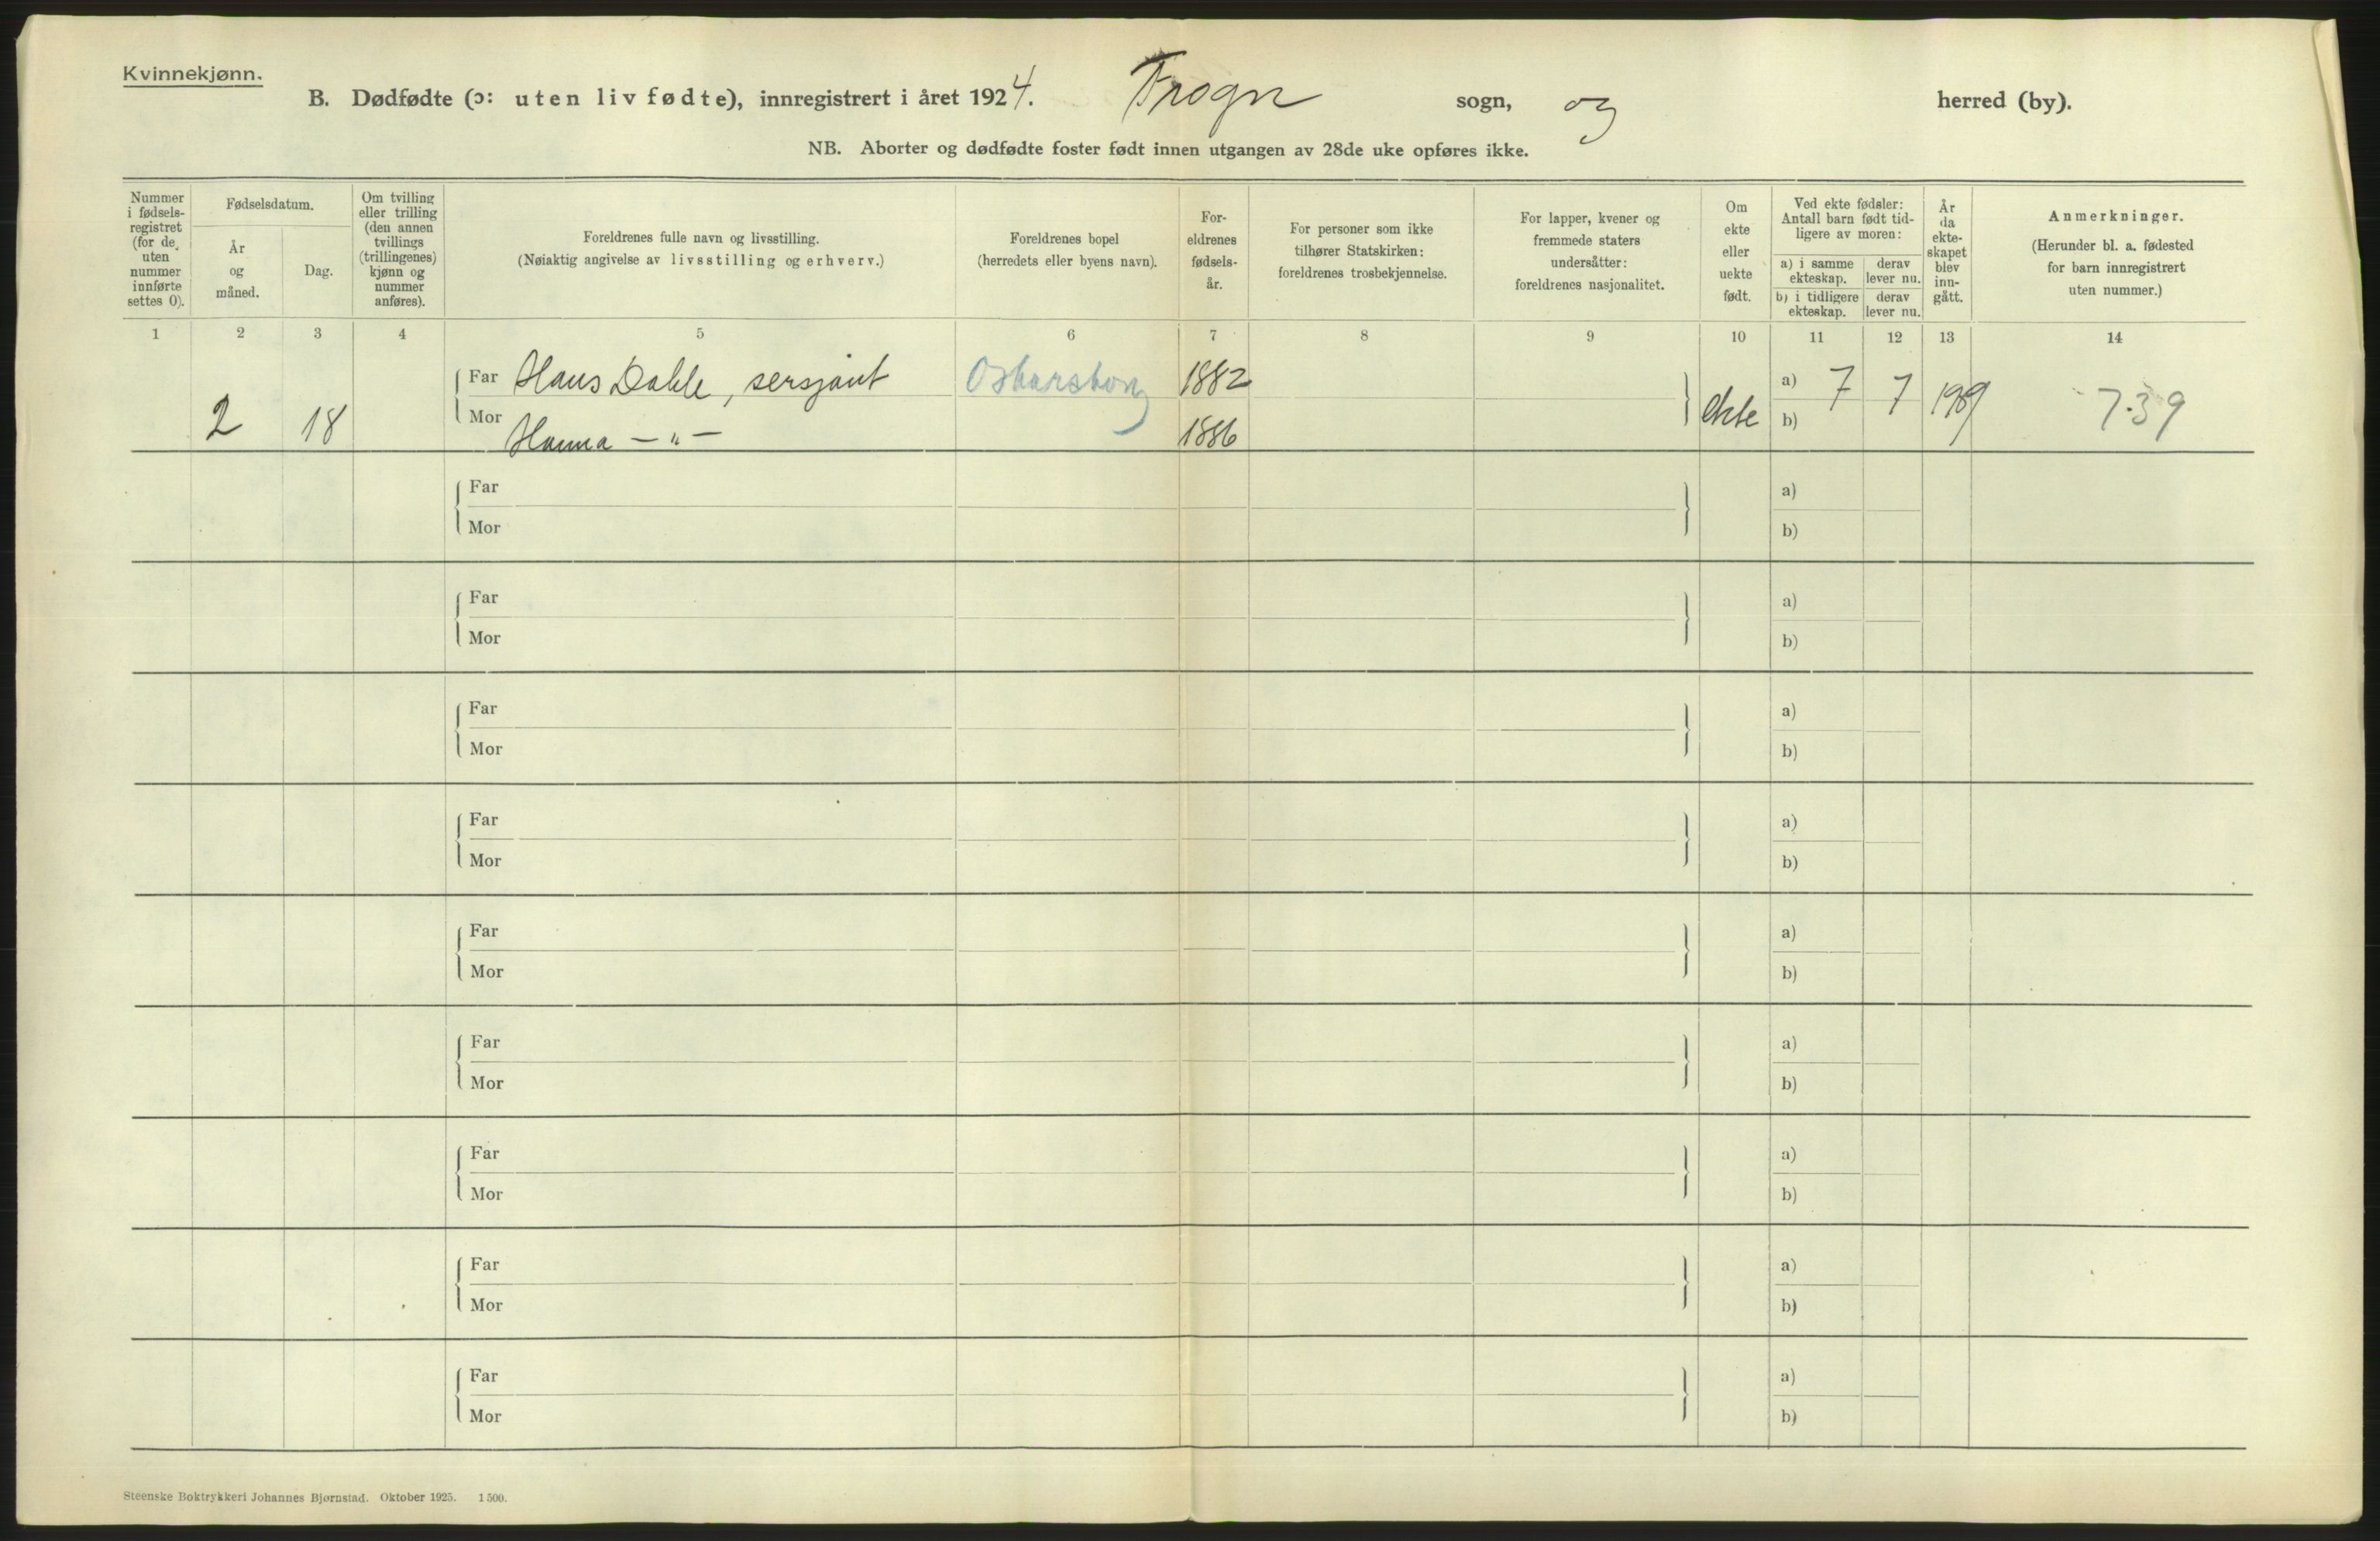 Kvinnekjønn.
B. Dødfødte (ɔ: uten liv fødte), innregistrert i året 1924. Frogn sogn, og herred (by).
NB. Aborter og dødfødte foster født innen utgangen av 28de uke opføres ikke.
Nummer i fødsels-registret (for de uten nummer innførte settes 0).
Fødselsdatum.
År og måned.
Dag.
Om tvilling eller trilling (den annen tvillings (trillingenes) kjønn og nummer anføres).
Foreldrenes fulle navn og livsstilling.
(Nøiaktig angivelse av livsstilling og erhverv.)
Foreldrenes bopel
(herredets eller byens navn).
For-eldrenes fødsels-år.
For personer som ikke tilhører Statskirken: foreldrenes trosbekjennelse.
For lapper, kvener og fremmede staters undersåtter: foreldrenes nasjonalitet.
Om ekte eller uekte født.
Ved ekte fødsler: Antall barn født tid-ligere av moren:
a) i samme ekteskap.
derav lever nu.
b) i tidligere ekteskap.
derav lever nu.
År da ekte-skapet blev inn-gått.
Anmerkninger.
(Herunder bl. a. fødested for barn innregistrert uten nummer.)
1 2 3 4 5 6 7 8 9 10 11 12 13 14
Far Hans Dahle, sersjant Oskarsborg 1882 a) 7 7
2 18 ekte 7·39
Mor Hanna —"— 1886 b)
Far a)
Mor b)
Far a)
Mor b)
Far a)
Mor b)
Far a)
Mor b)
Far a)
Mor b)
Far a)
Mor b)
Far a)
Mor b)
Far a)
Mor b)
Far a)
Mor b)
Steenske Boktrykkeri Johannes Bjørnstad. Oktober 1925. 1500.